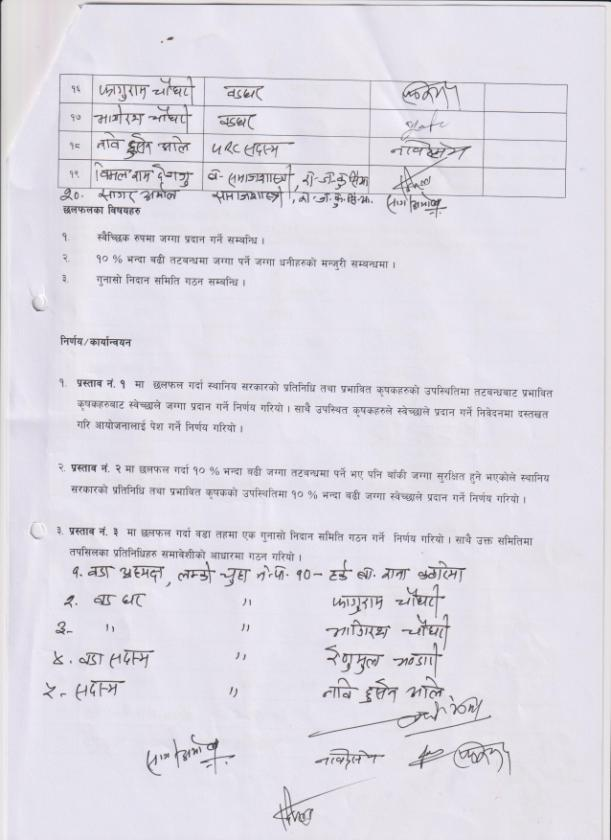 १६ फागुराम चौधरी बडघर
१७ भागिरथ चौधरी बडघर
१८ नवि हुसेन भाले URC सदस्य
१९ विमल राम
२०. सागर समाजशास्त्री,
छलफलका विषयहरु
१. स्वैच्छिक रुपमा जग्गा प्रदान गर्ने सम्बन्धि ।
२. १० % भन्दा बढी तटबन्धमा जग्गा पर्ने जग्गा धनीहरुको मन्जुरी सम्बन्धमा ।
३. गुनासो निदान समिति गठन सम्बन्धि ।
निर्णय/कार्यान्वयन
१. प्रस्ताव नं. १ मा छलफल गर्दा स्थानिय सरकारको प्रतिनिधि तथा प्रभावित कृषकहरुको उपस्थितिमा तटबन्धबाट प्रभावित
कृषकहरुबाट स्वेच्छाले जग्गा प्रदान गर्ने निर्णय गरियो । साथै उपस्थित कृषकहरुले स्वेच्छाले प्रदान गर्ने निवेदनमा दस्तखत
गरि आयोजनालाई पेश गर्ने निर्णय गरियो ।
२. प्रस्ताव नं. २ मा छलफल गर्दा १० % भन्दा बढी जग्गा तटबन्धमा पर्ने भए पनि बाँकी जग्गा सुरक्षित हुने भएकोले स्थानिय
सरकारको प्रतिनिधि तथा प्रभावित कृषकको उपस्थितिमा १० % भन्दा बढी जग्गा स्वेच्छाले प्रदान गर्ने निर्णय गरियो ।
३. प्रस्ताव नं. ३ मा छलफल गर्दा वडा तहमा एक गुनासो निदान समिति गठन गर्ने निर्णय गरियो । साथै उक्त समितिमा
तपसिलका प्रतिनिधिहरु समावेशीको आधारमा गठन गरियो ।
१. वडा अध्यक्ष, लम्की चुहा न.पा. १०-
२. बडघर " फागुराम चौधरी
३- " " भागिरथ चौधरी
४. वडा सदस्य "
५- सदस्य " नवि हुसेन भाले